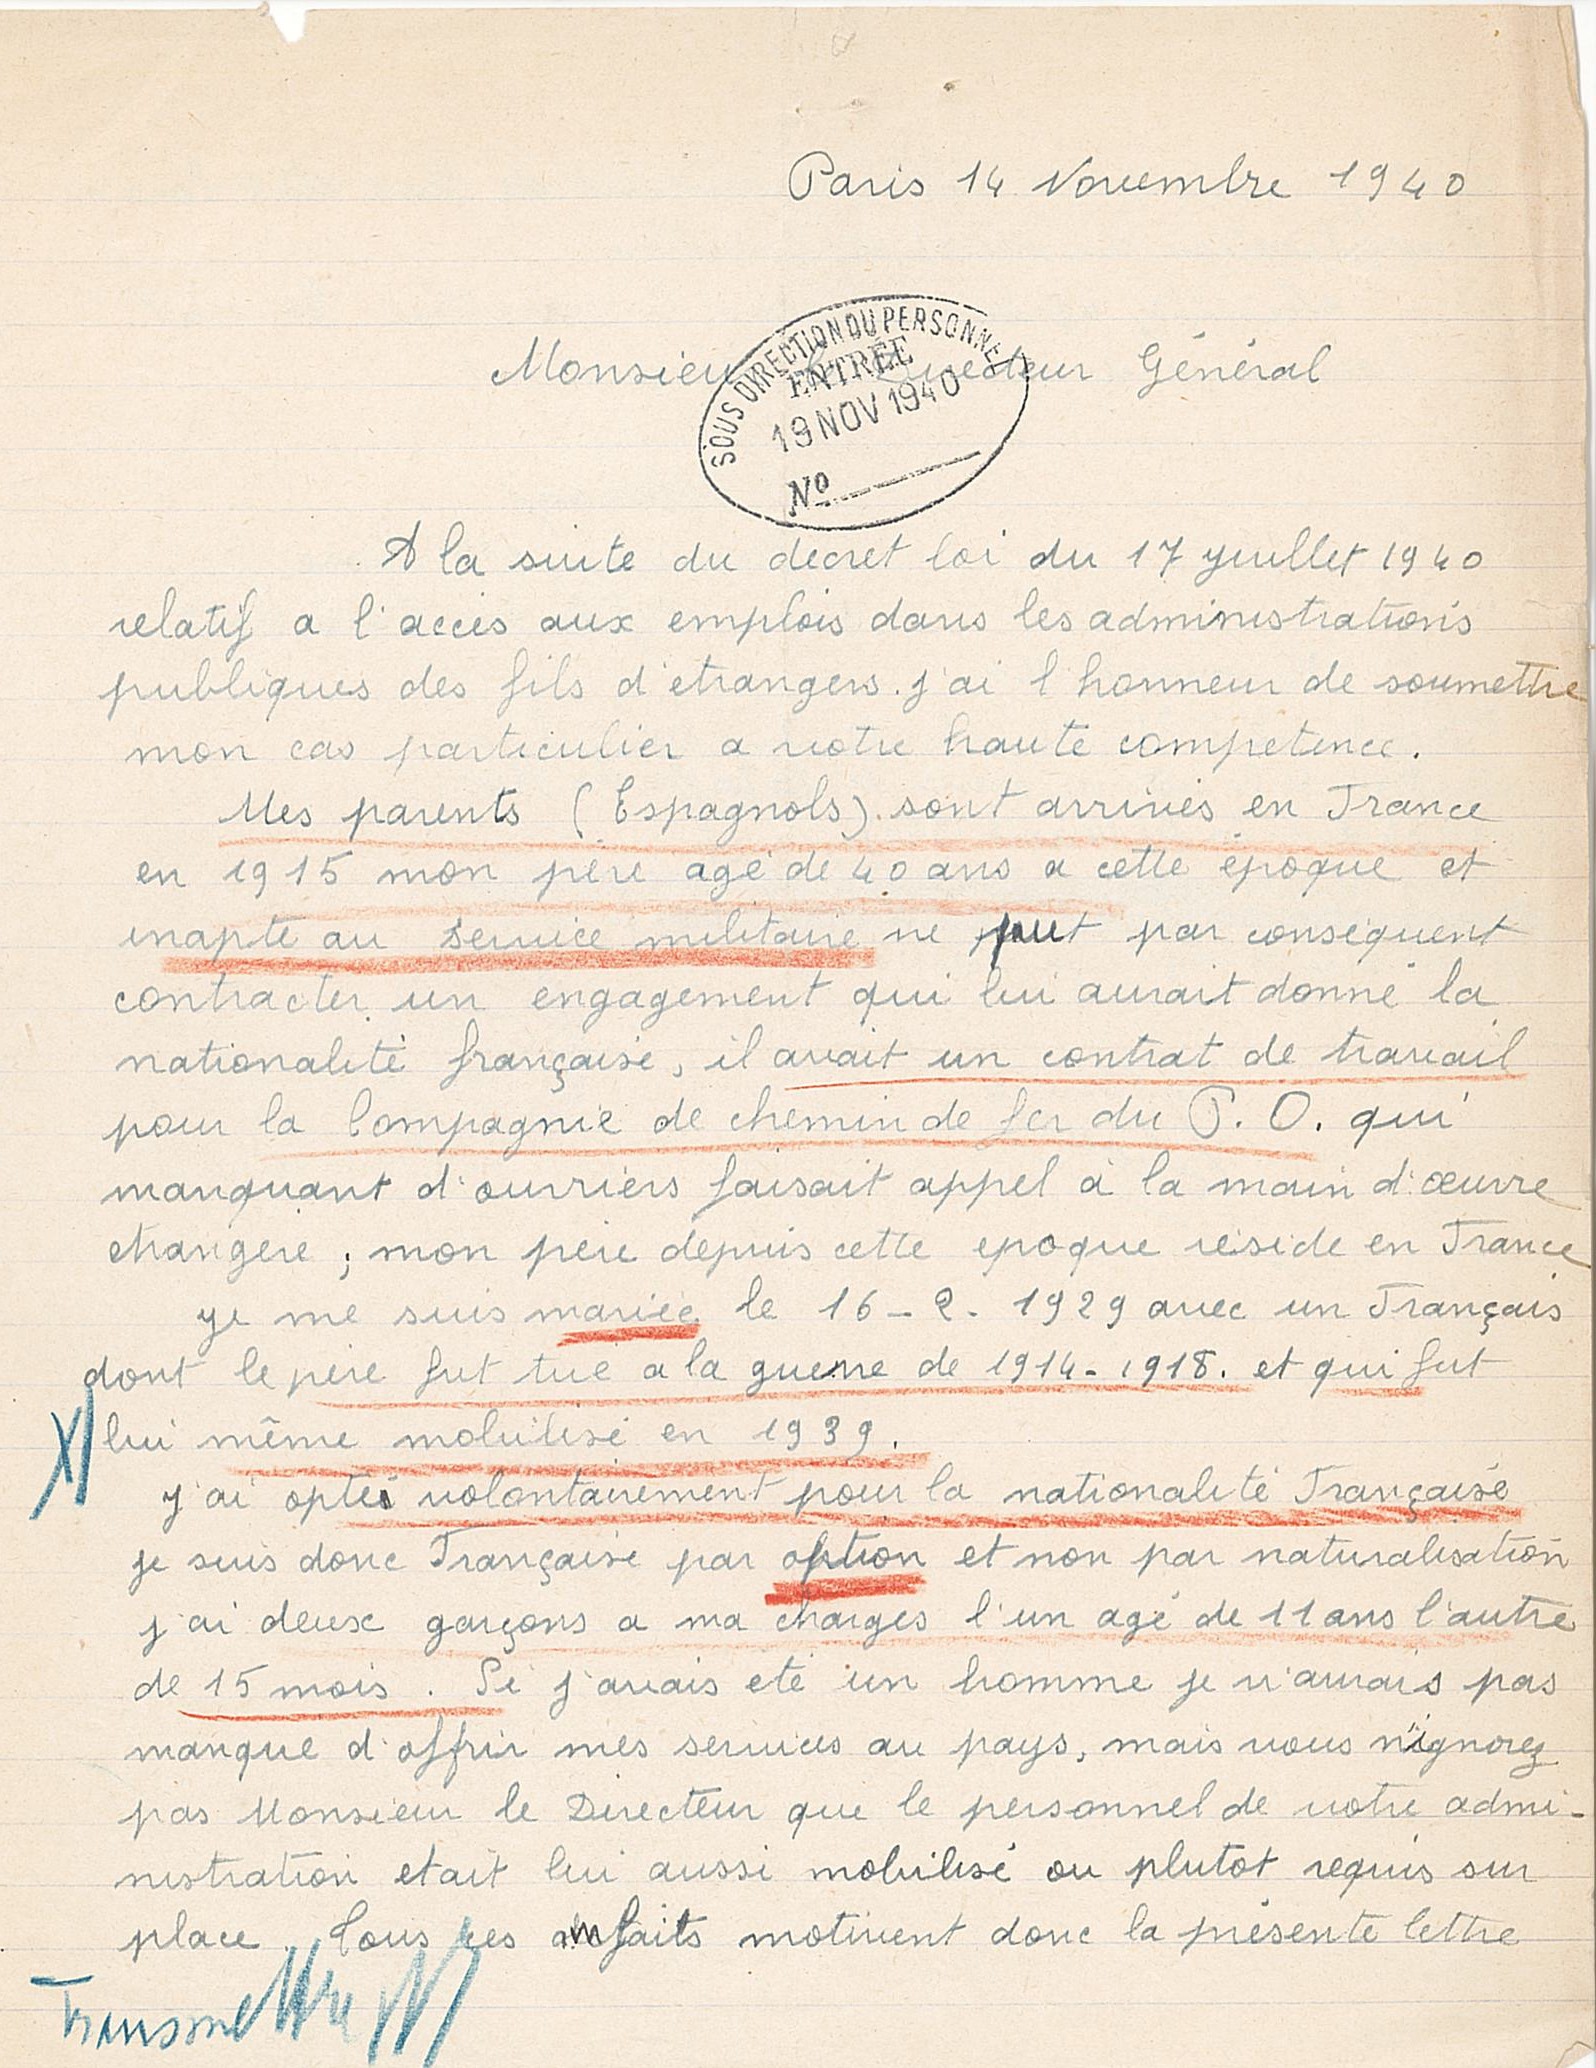 Paris 14 Novembre 1940
SOUS DIRECTION DU PERSONNEL
ENTRÉE
19 NOV 1940
No
Monsieur le Directeur Général
A la suite du décret loi du 17 Juillet 1940
relatif a l'accès aux emplois dans les administrations
publiques des fils d'etrangers. j'ai l'honneur de soumettre
mon cas particulier a votre haute competence.
Mes parents (Espagnols). sont arrivés en France
en 1915 mon père agé de 40 ans a cette époque et
inapte au service militaire ne put par conséquent
contracter un engagement qui lui aurait donné la
nationalité française, il avait un contrat de travail
pour la Compagnie de chemin de fer du P. O. qui
manquant d'ouvriers faisait appel à la main d'œuvre
etrangère ; mon père depuis cette epoque réside en France
je me suis mariée le 16-2-1929 avec un Français
dont le père fut tué a la guerre de 1914-1918. et qui fut
lui même mobilisé en 1939.
j'ai opté volontairement pour la nationalité Française
je suis donc Française par option et non par naturalisation
j'ai deux garçons a ma charges l'un agé de 11 ans l'autre
de 15 mois. Si j'avais eté un homme je n'aurais pas
manqué d'offrir mes services au pays, mais vous n'ignorez
pas Monsieur le Directeur que le personnel de votre admi-
nistration etait lui aussi mobilisé ou plutot requis sur
place. Tous ces faits motivent donc la présente lettre
Transmettre